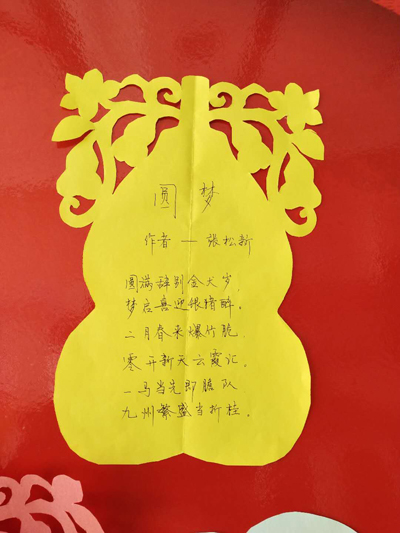 圆 梦
作者 — 张松新
圆满辞别金犬岁,
梦启喜迎银猪醉。
二月春来爆竹脆
零开新天云霞汇。
一马当先即 队
九州繁盛当折桂。